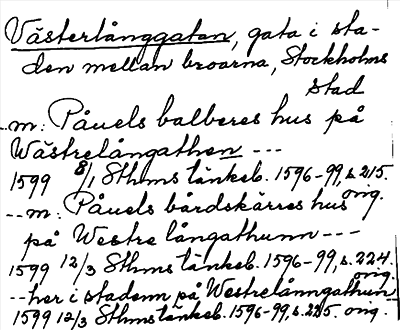 Västerlånggatan, gata i sta-
den mellan broarna, Stockholms
stad
--m: Påuels balberes hus på
Wästrelångathen ---
1599 8/1 Sthms tänkeb. 1596-99, s. 215.
orig.
--m: Påuels bårdskärres hus
på Westre långathunn ---
1599 12/3 Sthms tänkeb. 1596-99, s. 224.
orig.
--her i stadenn på Westrelånngathun
1599 12/3 Sthms tänkeb. 1596-99, s. 225. orig.